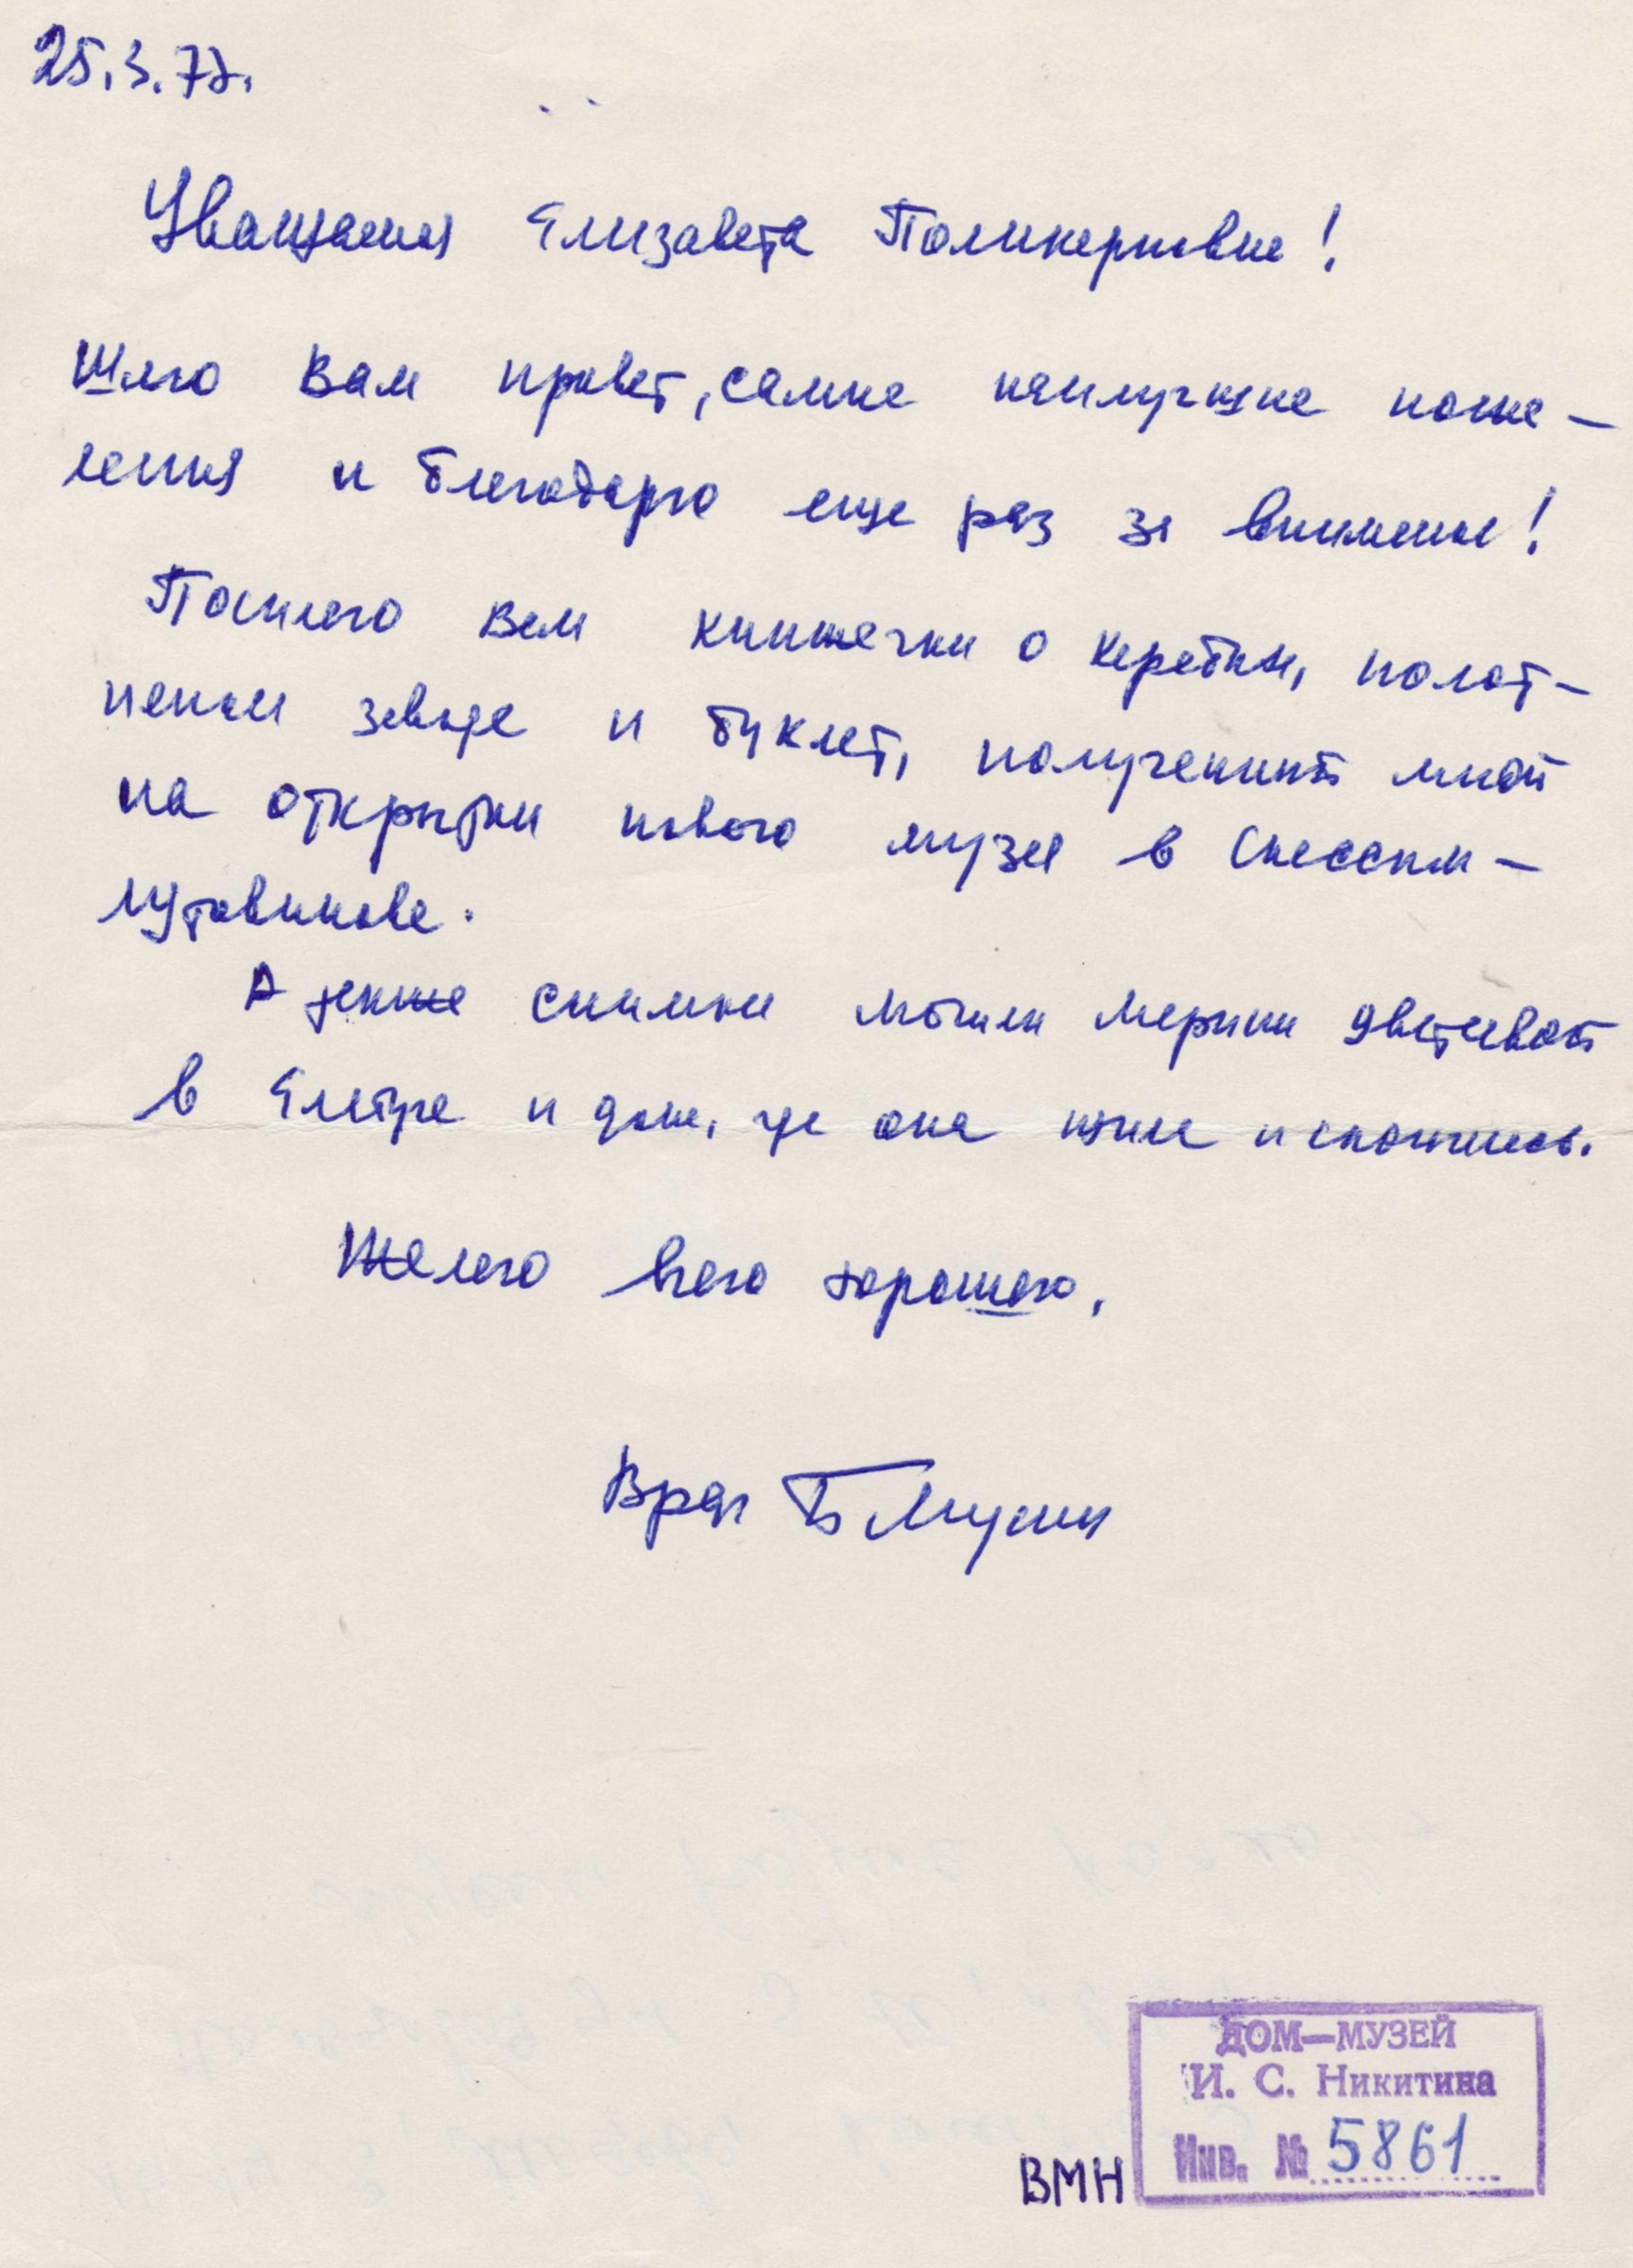 25.3.77.
Уважаемая Елизавета Поликарповна!
Шлю Вам привет, самые наилучшие поже-
лания и благодарю еще раз за внимание!
Посылаю Вам книжечки о Карабихе, полот-
няном заводе и буклет, полученный мной
на открытии нового музея в Спасском-
Лутовинове.
А также снимки могилы Марины Цветаевой
в Елабуге и дома, где она жила и скончалась.
Желаю всего хорошего,
Врач Б Мусин
ДОМ—МУЗЕЙ
И. С. Никитина
Инв. № 5861
ВМН